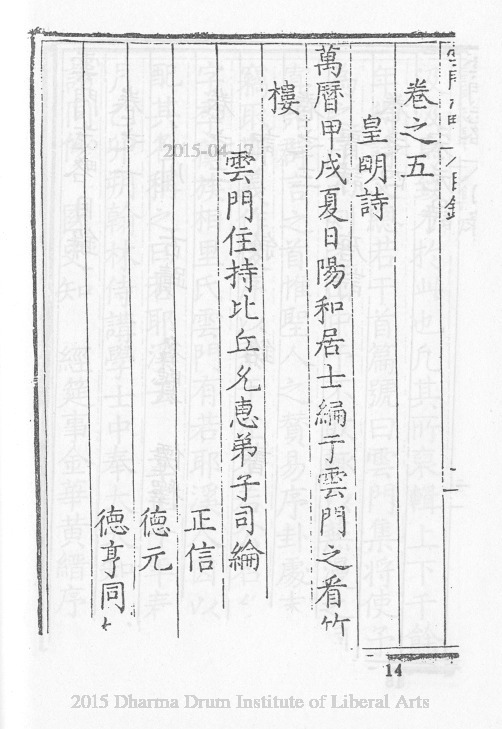 卷之五
皇明詩
萬曆甲戌夏日陽和居士編于雲門之看竹
樓
雲門住持比丘允惠弟子司綸
正信
德元
德亨同
14
2015-04-17
2015 Dharma Drum Institute of Liberal Arts